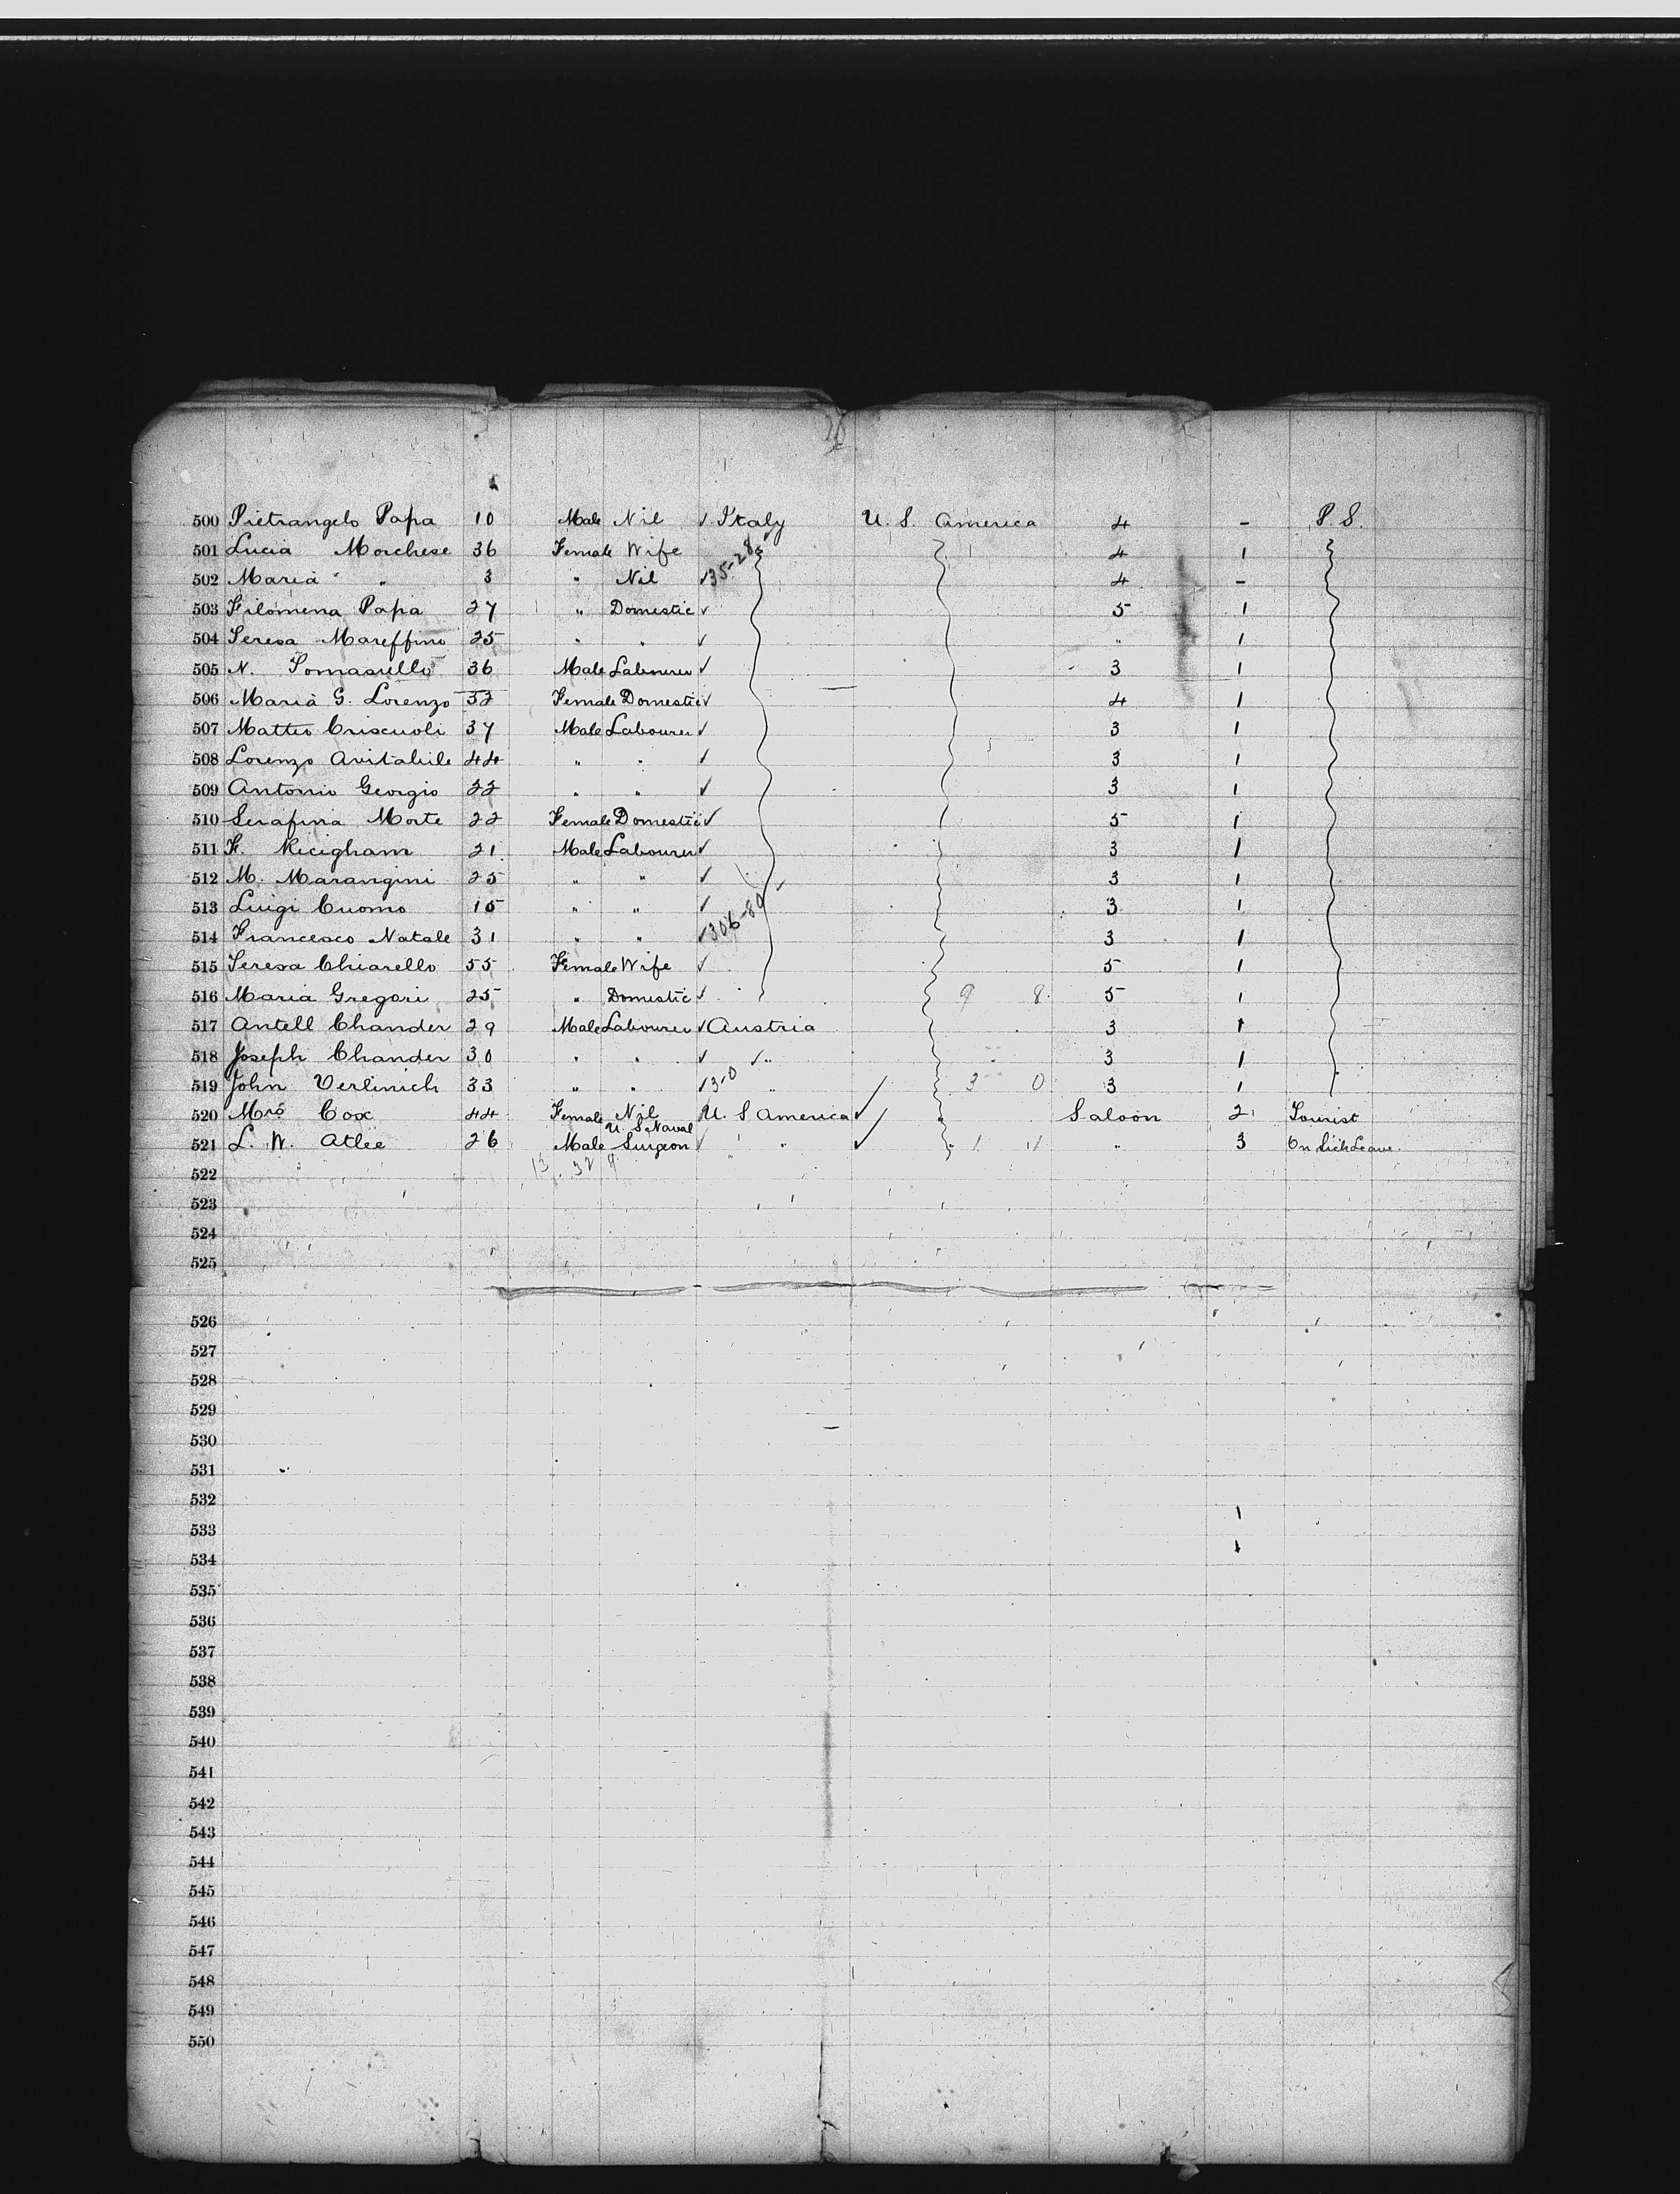 500 Pietrangelo Papa 10 Male Nil ✓ Italy U. S. America 4 - P. S.
501 Lucia Morchese 36 Female Wife 4 1
502 Maria " 3 " Nil ✓ 135-28 4 -
503 Filomena Papa 27 " Domestic ✓ 5 1
504 Teresa Mareffino 25 " " ✓ " 1
505 N. Tomasullo 36 Male Labourer ✓ 3 1
506 Maria G. Lorenzo 32 Female Domestic ✓ 4 1
507 Matteo Criscuoli 37 Male Labourer ✓ 3 1
508 Lorenzo Avitabile 44 " " ✓ 3 1
509 Antonio Georgio 22 " " ✓ 3 1
510 Serafina Morte 22 Female Domestic ✓ 5 1
511 F. Ricigham 21 Male Labourer ✓ 3 1
512 M. Marangini 25 " " ✓ 3 1
513 Luigi Cuomo 15 " " ✓ 3 1
514 Francesco Natale 31 " " ✓ 306-89 3 1
515 Teresa Chiarello 55 Female Wife ✓ 5 1
516 Maria Gregori 25 " Domestic ✓ 9 8 5 1
517 Antell Chander 29 Male Labourer ✓ Austria 3 1
518 Joseph Chander 30 " " ✓ " 3 1
519 John Verlinich 33 " " ✓ 3-0 " 3 0 3 1
520 Mrs Cox 44 Female Nil U. S America ✓ " Saloon 2 Tourist
521 L. W. Atlee 26 Male U. S Naval Surgeon ✓ " ✓ " 1 " 3 On Sick Leave.
522
523
524
525
526
527
528
529
530
531
532
533
534
535
536
537
538
539
540
541
542
543
544
545
546
547
548
549
550